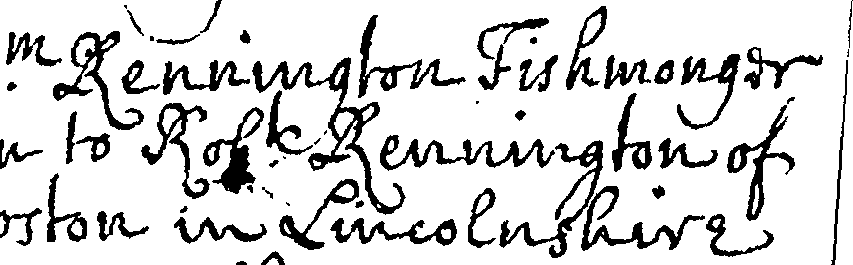 m Rennington Fishmonger
n to Robt Rennington of
oston in Lincolnshire